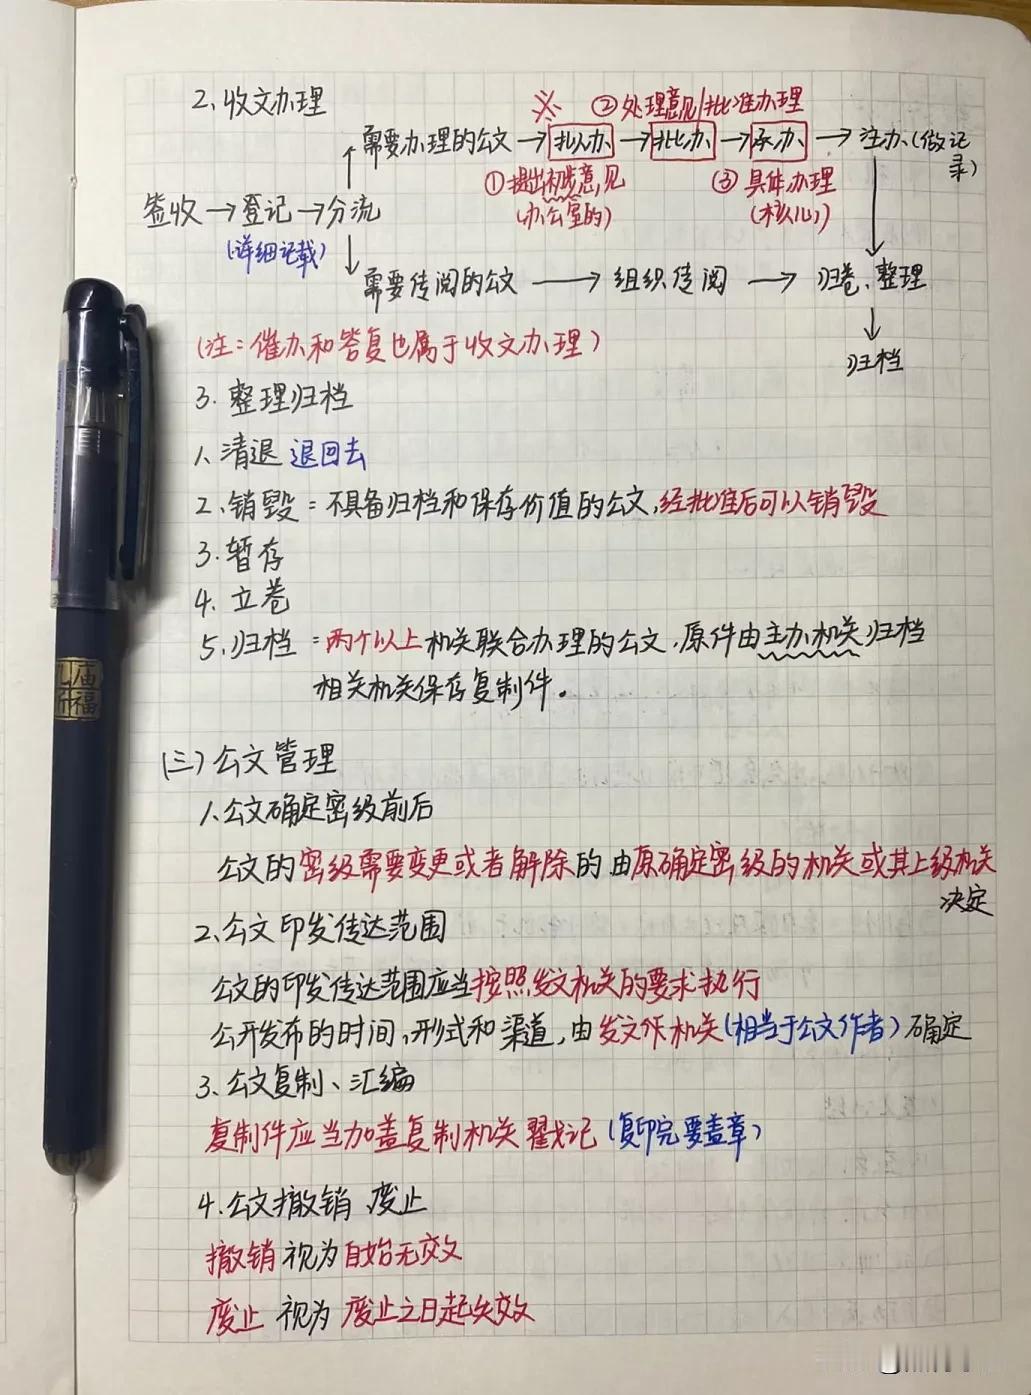 2、收文办理
※ ②处理意见/批准办理
需要办理的公文→拟办→批办→承办→注办(做记录)
①提出初步意见 ③具体办理
(办公室的) (核心)
签收→登记→分流
(详细记载)
需要传阅的公文→组织传阅→归卷、整理
(注：催办和答复也属于收文办理)
归档
3.整理归档
1、清退 退回去
2、销毁：不具备归档和保存价值的公文,经批准后可以销毁
3.暂存
4.立卷
5.归档：两个以上机关联合办理的公文,原件由主办机关归档
相关机关保存复制件。
(三)公文管理
1.公文确定密级前后
公文的密级需要变更或者解除的由原确定密级的机关或其上级机关
决定
2、公文印发传达范围
公文的印发传达范围应当按照发文机关的要求执行
公开发布的时间、形式和渠道,由发文机关(相当于公文作者)确定
3、公文复制、汇编
复制件应当加盖复制机关戳记(复印完要盖章)
4.公文撤销、废止
撤销 视为自始无效
废止 视为 废止之日起失效
福